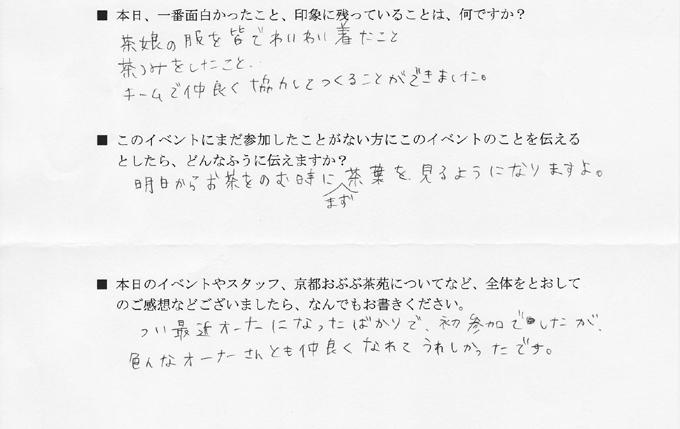 ■ 本日、一番面白かったこと、印象に残っていることは、何ですか？
茶娘の服を皆でわいわい着たこと
茶つみをしたこと、
チームで仲良く協力してつくることができました。
■ このイベントにまだ参加したことがない方にこのイベントのことを伝える
としたら、どんなふうに伝えますか？
明日からお茶をのむ時に茶葉を、見るようになりますよ。
まず
■ 本日のイベントやスタッフ、京都おぶぶ茶苑についてなど、全体をとおして
のご感想などございましたら、なんでもお書きください。
つい最近オーナーになったばかりで、初参加でしたが、
色んなオーナーさんとも仲良くなれてうれしかったです。